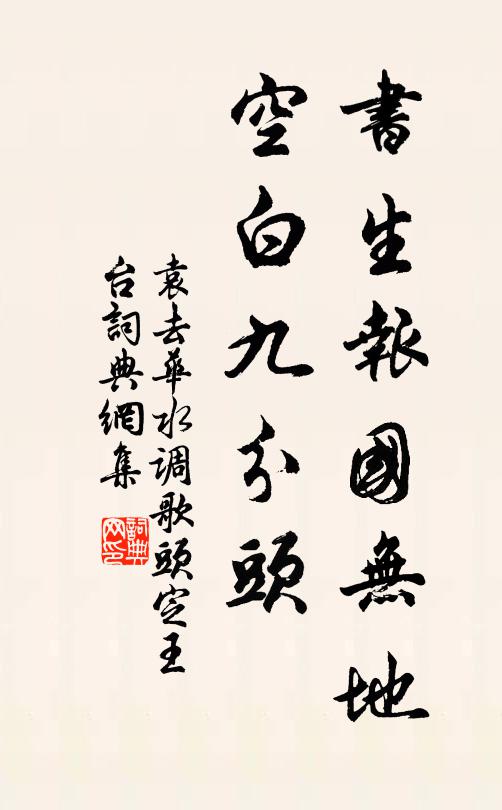 書生報國無地
空白九分頭
袁去華水调歌頭定王
台詞典網集
詞典
网印